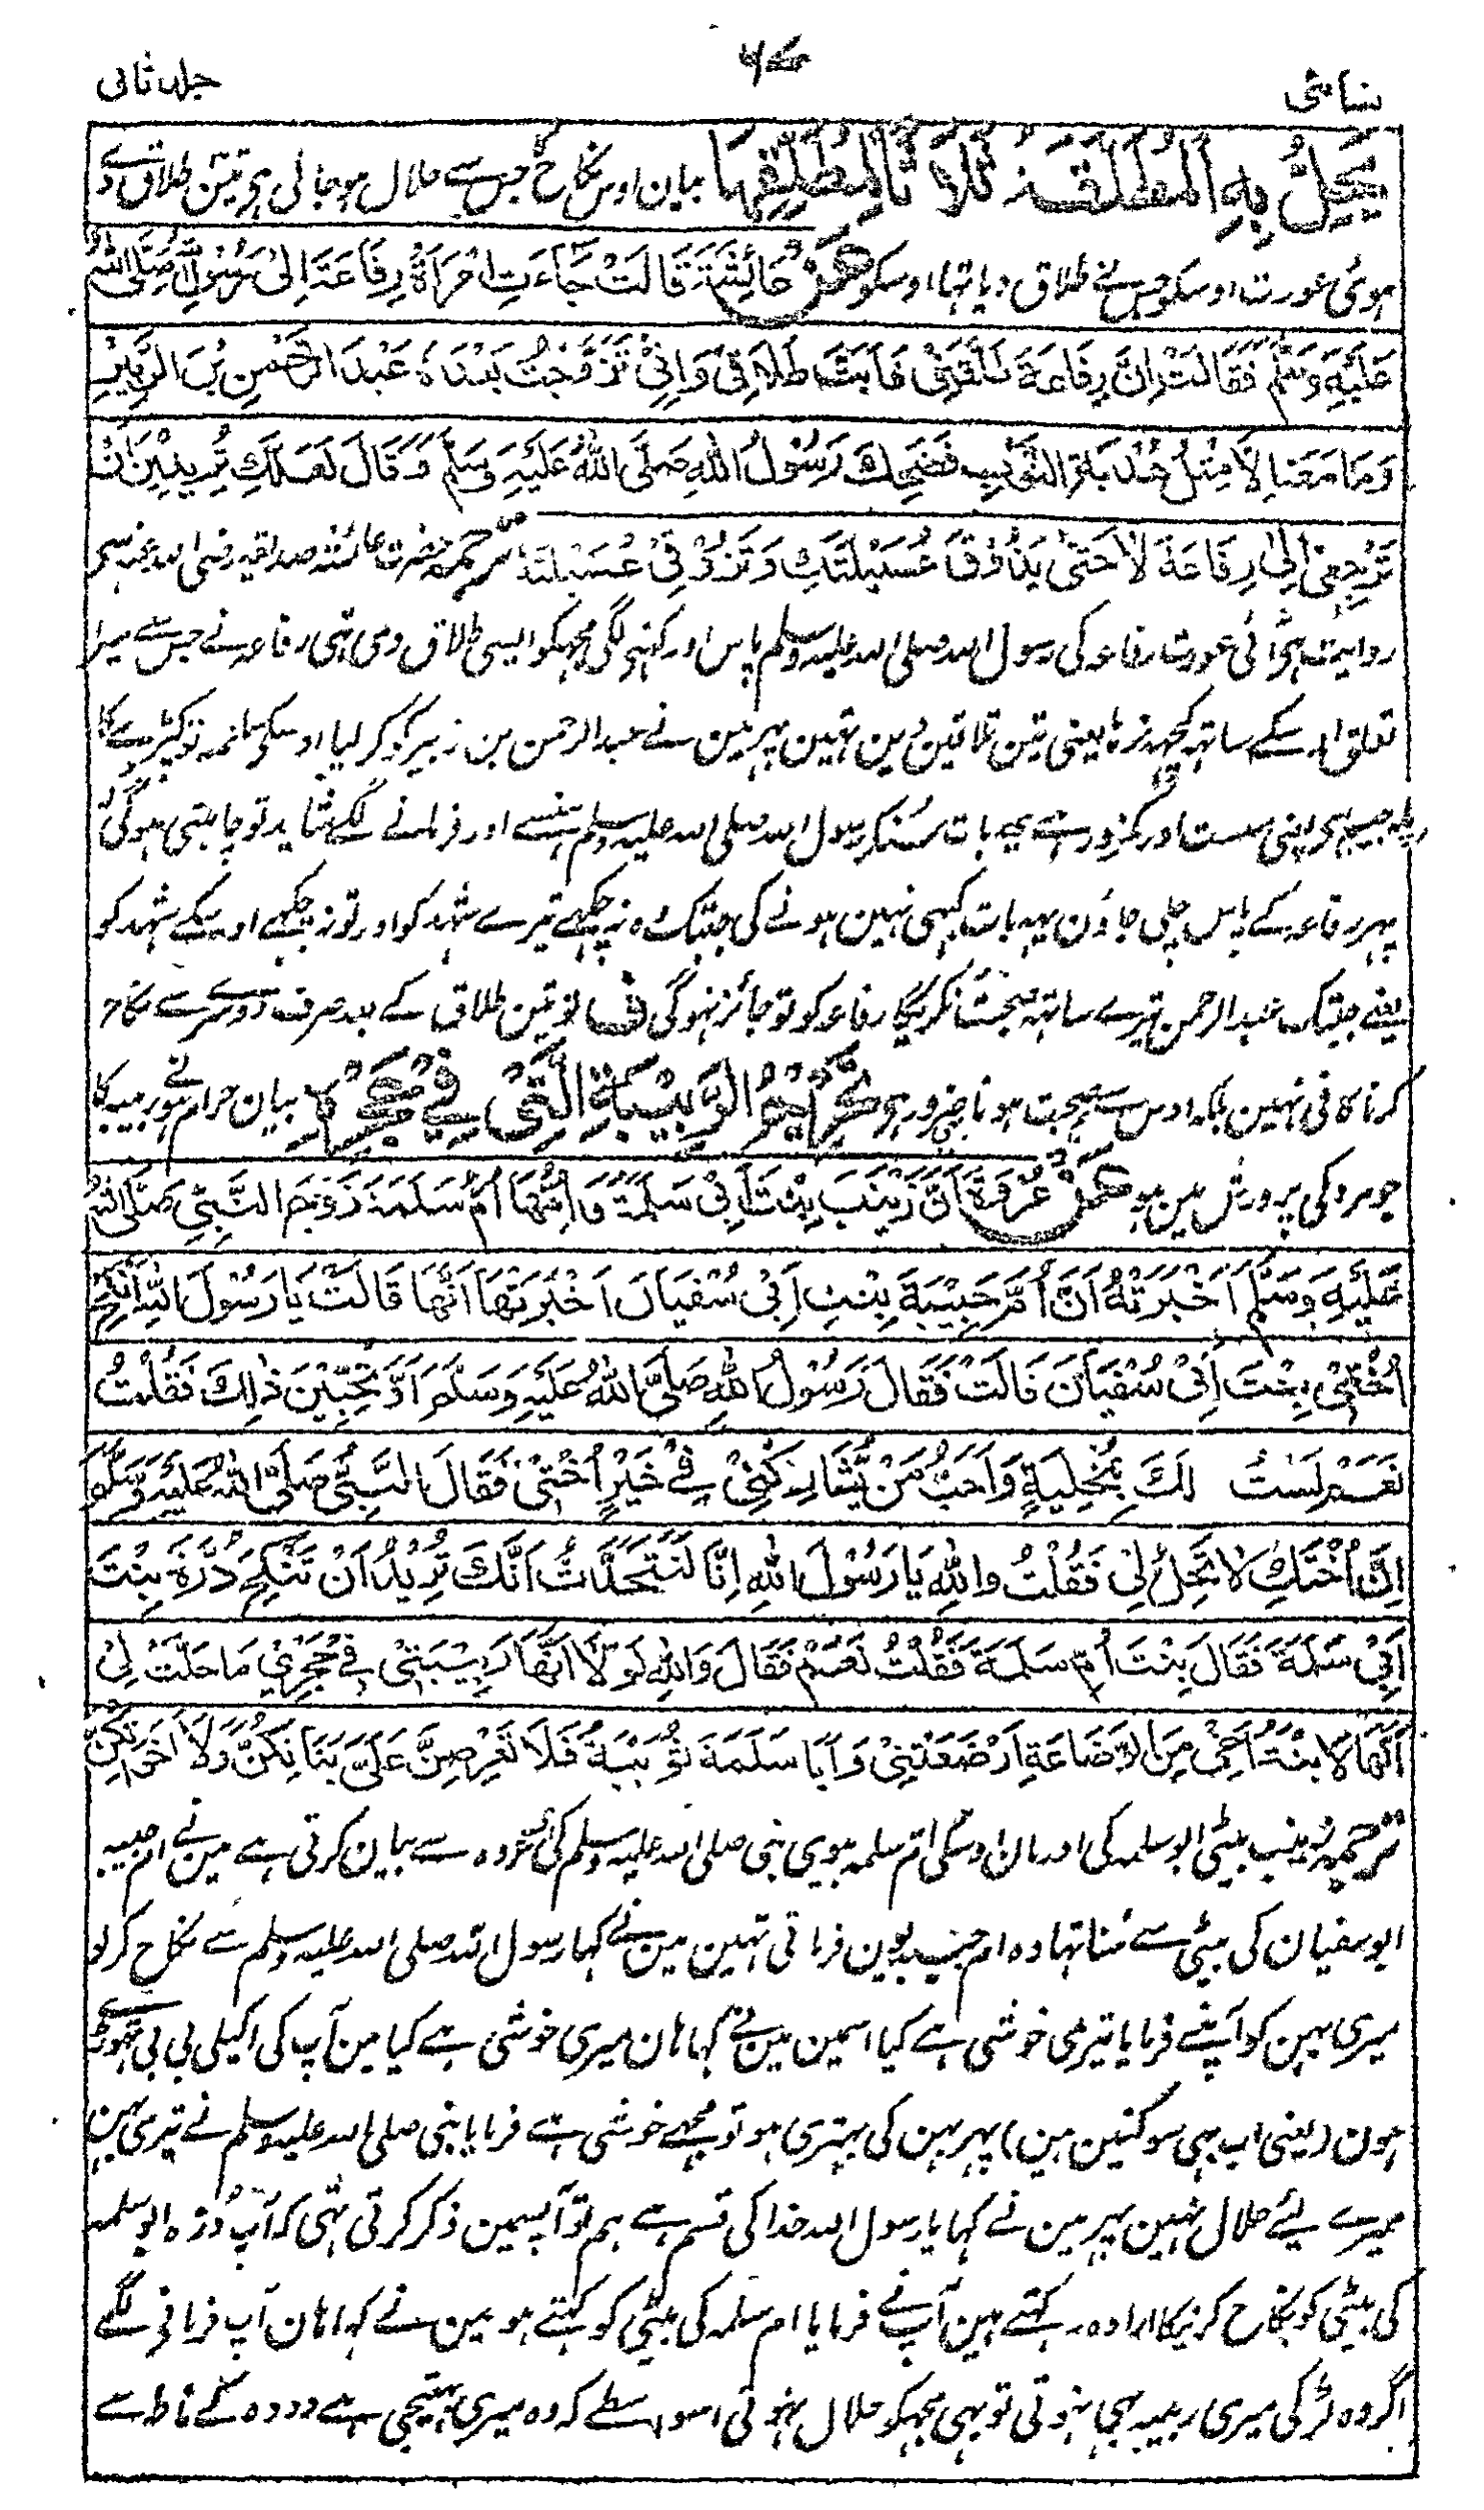 نسائی
۶۷
جلد ثانی
يَحِلُّ بِهِ الْمُطَلَّقَةُ ثَلَاثًا لِمُطَلِّقِهَا بیان اوس نکاح جس سے حلال ہوجاتی ہے تین طلاق دی
ہوئی عورت اوسکو جس نے طلاق دیا تہا اوسکو عَنْ عَائِشَةَ قَالَتْ جَاءَتِ امْرَأَةُ رِفَاعَةَ اِلٰى رَسُوْلِ اللهِ صَلَّى اللهُ
عَلَيْهِ وَسَلَّمَ فَقَالَتْ اِنَّ رِفَاعَةَ طَلَّقَنِيْ فَاَبَتَّ طَلَاقِيْ وَاِنِّيْ تَزَوَّجْتُ بَعْدَهٗ عَبْدَ الرَّحْمٰنِ بْنَ الزَّبِيْرِ
وَمَا مَعَهٗ اِلَّا مِثْلُ هُدْبَةِ الثَّوْبِ فَضَحِكَ رَسُوْلُ اللهِ صَلَّى اللهُ عَلَيْهِ وَسَلَّمَ وَقَالَ لَعَلَّكِ تُرِيْدِيْنَ اَنْ
تَرْجِعِيْ اِلٰى رِفَاعَةَ لَا حَتّٰى يَذُوْقَ عُسَيْلَتَكِ وَتَذُوْقِيْ عُسَيْلَتَهٗ ترجمہ حضرت عائشہ صدیقہ رضی اللہ عنہا سے
روایت ہے آئی عورت رفاعہ کی رسول اللہ صلی اللہ علیہ وسلم پاس اور کہنے لگی مجہکو ایسی طلاق دی تہی رفاعہ نے جس سے میرا
تعلق اوسکے ساتہہ کچہہ نرہا یعنی تین طلاقین دین تہین پہر مین نے عبدالرحمن بن زبیر کو کر لیا اوسکے ساتہہ تو کپڑے کا
پلہ جیسے ہے یعنی سست اور کمزور ہے یہہ بات سُنکر رسول اللہ صلی اللہ علیہ وسلم ہنسے اور فرمانے لگے شاید تو چاہتی ہوگی
پہر رفاعہ کے پاس چلی جاؤن یہہ بات کبہی نہین ہونے کی جبتک وہ نہ چکہے تیرے شہد کو اور تو نہ چکہے اوسکے شہد کو
یعنے جبتک عبدالرحمن تیرے ساتہہ صحبت نکریگا رفاعہ کو تو جائز نہوگی ف تو تین طلاق کے بعد صرف دوسرے سے نکاح
کرنا کافی نہین بلکہ اوس سے صحبت ہونا ضرور ہے تَحْرِيْمُ الرَّبِيْبَةِ الَّتِيْ فِيْ حَجْرِهٖ بیان حرام ہونے ربیبہ کا
جو مرد کی پرورش مین ہو عَنْ عُرْوَةَ اَنَّ زَيْنَبَ بِنْتَ اَبِيْ سَلَمَةَ وَاُمُّهَا اُمُّ سَلَمَةَ زَوْجَةُ النَّبِيِّ صَلَّى اللهُ
عَلَيْهِ وَسَلَّمَ اَخْبَرَتْهُ اَنَّ اُمَّ حَبِيْبَةَ بِنْتِ اَبِيْ سُفْيَانَ اَخْبَرَتْهَا اَنَّهَا قَالَتْ يَا رَسُوْلَ اللهِ اَنْكِحْ
اُخْتِيْ بِنْتَ اَبِيْ سُفْيَانَ قَالَتْ فَقَالَ رَسُوْلُ اللهِ صَلَّى اللهُ عَلَيْهِ وَسَلَّمَ اَوَ تُحِبِّيْنَ ذٰلِكَ فَقُلْتُ
نَعَمْ لَسْتُ لَكَ بِمُخْلِيَةٍ وَاَحَبُّ مَنْ يُّشَارِكُنِيْ فِيْ خَيْرٍ اُخْتِيْ فَقَالَ النَّبِيُّ صَلَّى اللهُ عَلَيْهِ وَسَلَّمَ
اِنَّ اُخْتَكِ لَا تَحِلُّ لِيْ فَقُلْتُ وَاللهِ يَا رَسُوْلَ اللهِ اِنَّا لَنَتَحَدَّثُ اَنَّكَ تُرِيْدُ اَنْ تَنْكِحَ دُرَّةَ بِنْتَ
اَبِيْ سَلَمَةَ فَقَالَ بِنْتَ اُمِّ سَلَمَةَ فَقُلْتُ نَعَمْ فَقَالَ وَاللهِ لَوْ لَا اَنَّهَا رَبِيْبَتِيْ فِيْ حَجْرِيْ مَا حَلَّتْ لِيْ
اَنَّهَا لَابْنَةُ اَخِيْ مِنَ الرَّضَاعَةِ اَرْضَعَتْنِيْ وَاَبَا سَلَمَةَ ثُوَيْبَةُ فَلَا تَعْرِضْنَ عَلَيَّ بَنَاتِكُنَّ وَلَا اَخَوَاتِكُنَّ
ترجمہ زینب بیٹی ابو سلمہ کی اور مان اوسکی ام سلمہ بیوی نبی صلی اللہ علیہ وسلم کی عروہ سے بیان کرتی ہے مین نے ام حبیبہ
ابو سفیان کی بیٹی سے سُنا تہا وہ ام حبیبہ یون فرماتی تہین مین نے کہا رسول اللہ صلی اللہ علیہ وسلم سے نکاح کر لو
میری بہن کو آپنے فرمایا تیری خوشی ہے کیا اسمین مین نے کہا ہان میری خوشی ہے کیا مین آپ کی اکیلی بی بی تہوڑے
ہون (یعنی اب بہی سوکنین ہین) پہر بہن کی بہتری ہو تو مجہے خوشی ہے فرمایا نبی صلی اللہ علیہ وسلم نے تیری بہن
میرے لیئے حلال نہین پہر مین نے کہا یا رسول اللہ خدا کی قسم ہے ہم تو آپسمین ذکر کرتی تہی کہ آپ دُرّہ ابو سلمہ
کی بیٹی کو نکاح کرنیکا ارادہ رکہتے ہین آپ نے فرمایا ام سلمہ کی بیٹی کو کہتے ہو مین نے کہا ہان آپ فرمانے لگے
اگر وہ لڑکی میری ربیبہ بہی نہوتی تو بہی مجہکو حلال نہوتی اسواسطے کہ وہ میری بہتیجی ہے دودہ کے ناطہ سے